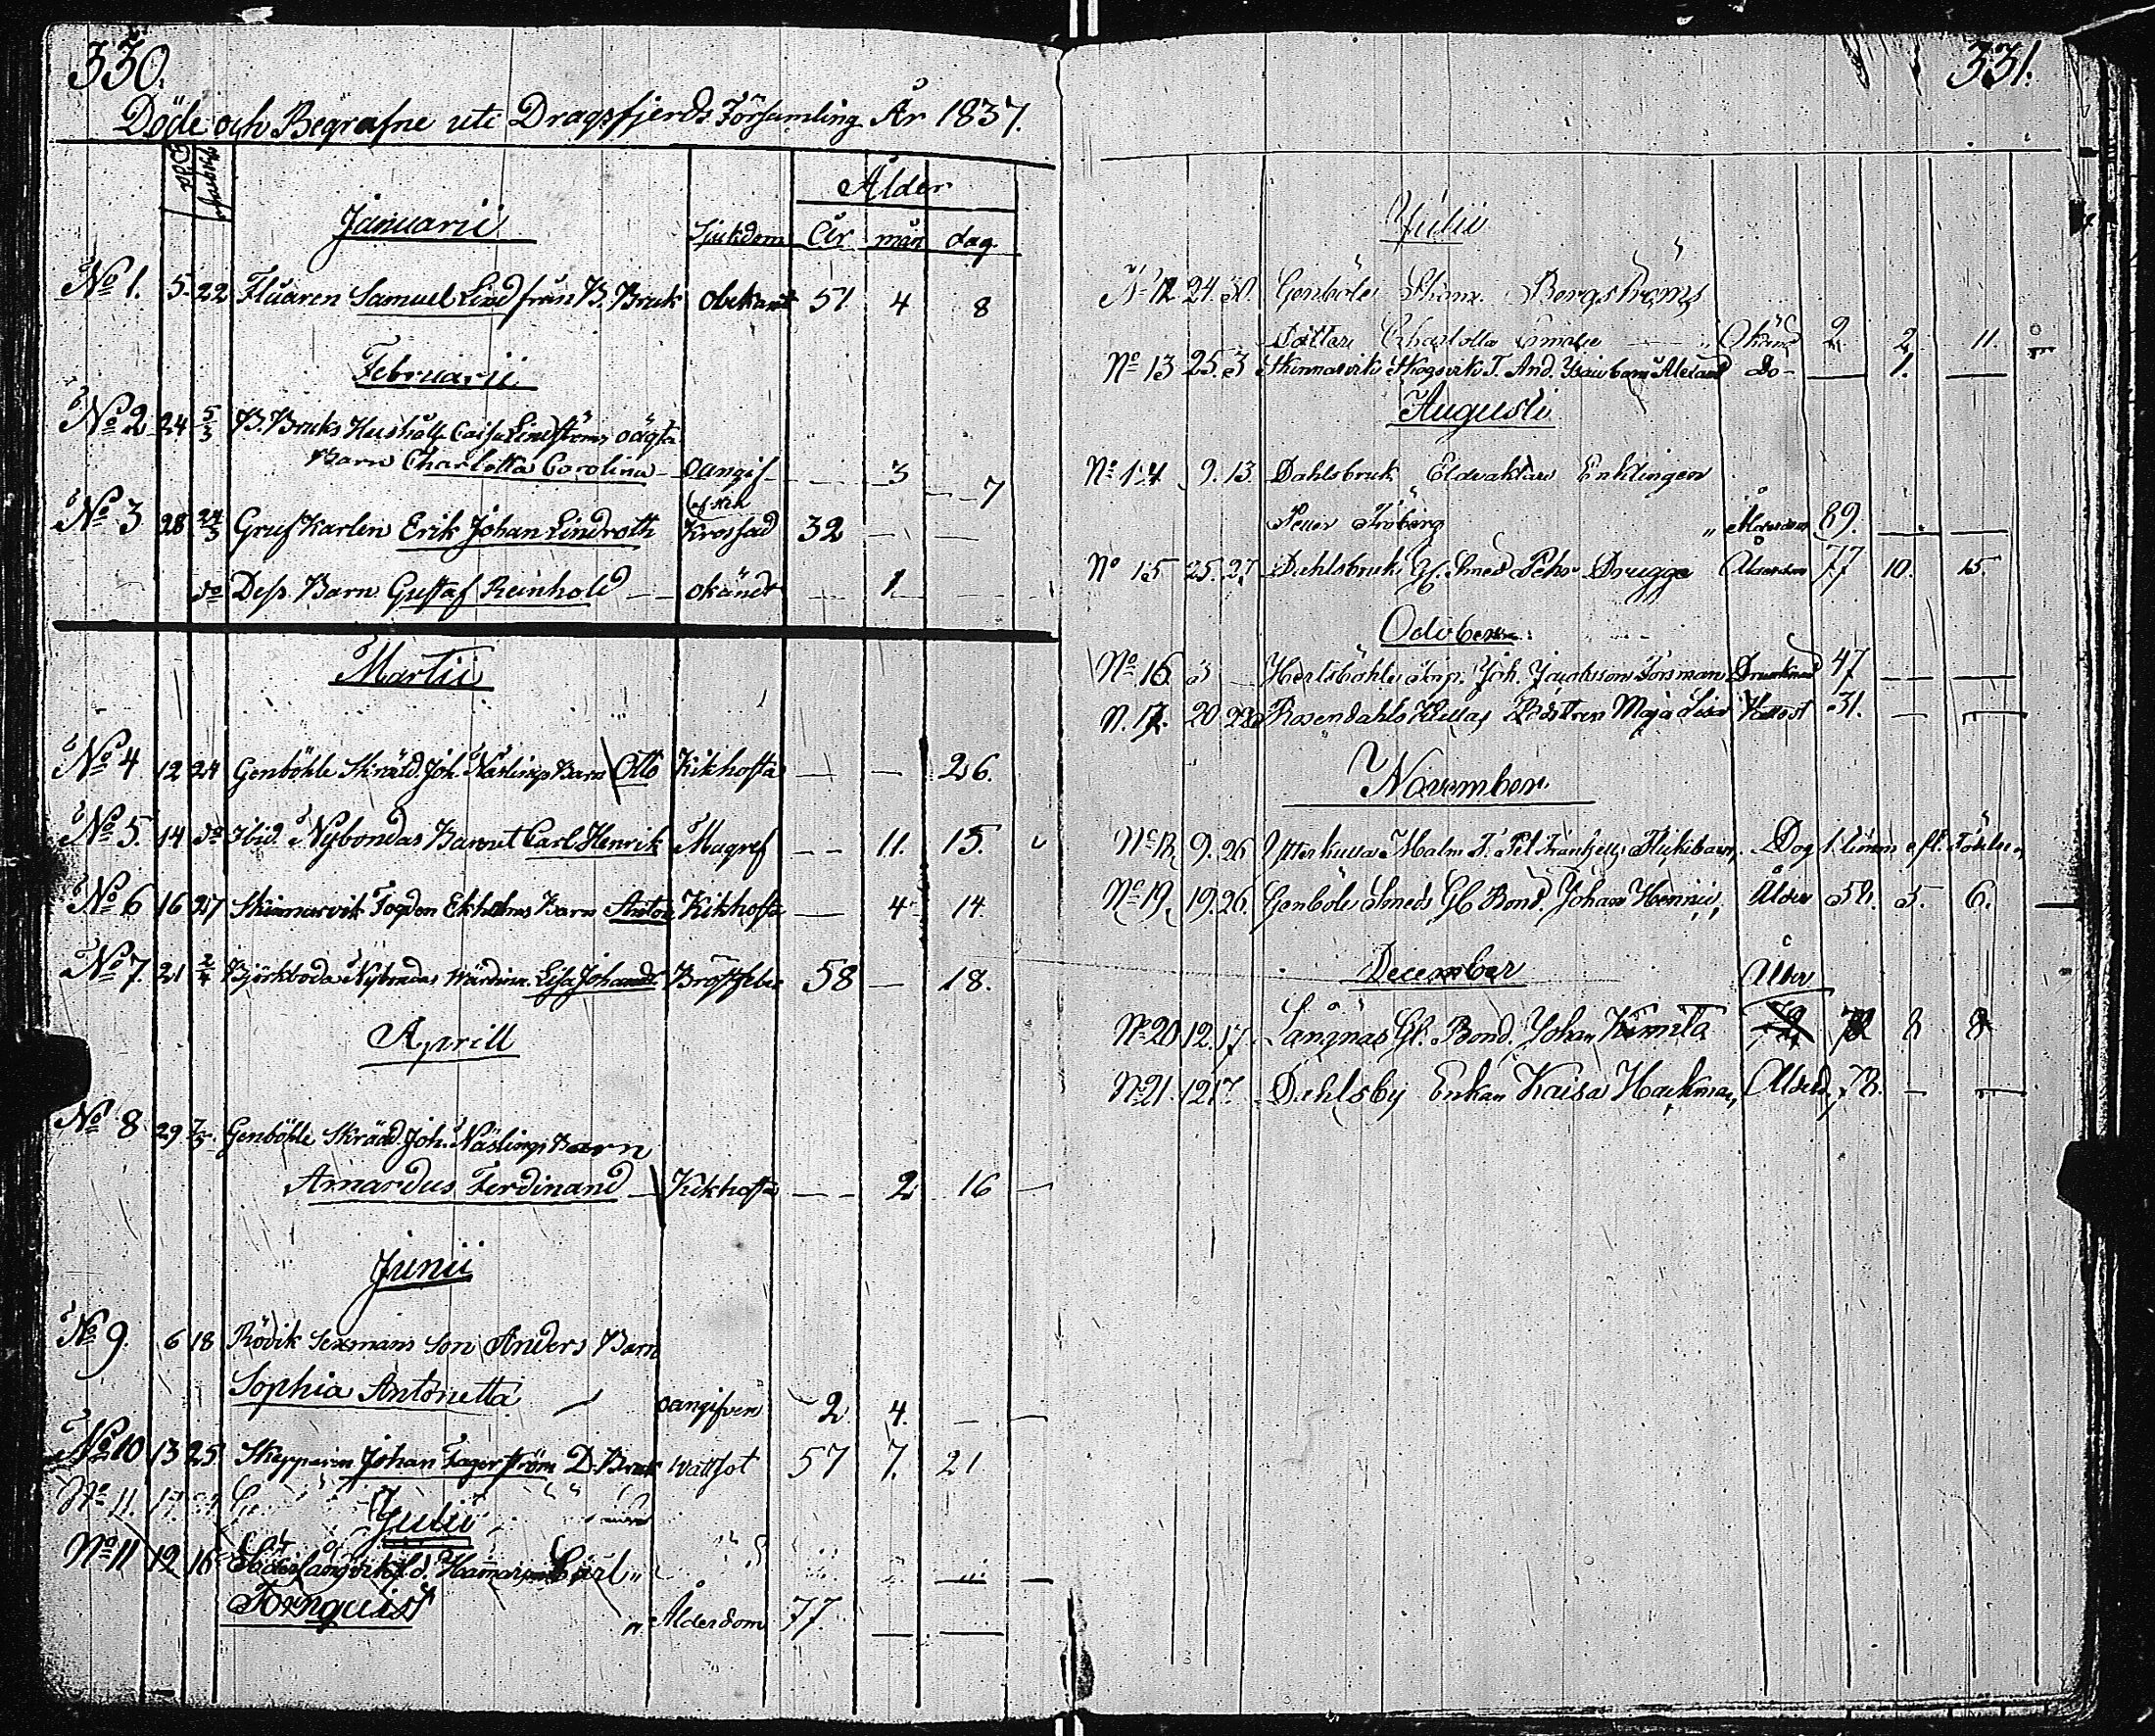 330.
Döde och Begrafne uti Dragsfjerds Församling År 1837.
Död
Ålder
Januarii Sjukdom År mån dag.
No 1. 5 22 Samuel Lind från B. Bruk obekant 51 4 8
Februarii
No 2 24 5/3 B. Bruks Hushåll. Caisa Lindströms oägta
Barn Charlotta Carolina oangif 3 7
No 3 28 24/3 Grufkarlen Erik Johan Lindroth Krossad 32
do Dess Barn Gustaf Reinhold okändt 1
Martii
No 4 12 24 Genböhle Skrädd. Joh. Näslings Barn Otto Kikhosta 26.
No 5. 14 do Ibid. Nybondas Barnet Carl Henrik Magref 11. 15.
No 6 16 27 Skinnarvik Fogden Ekholms Barn Anton Kikhosta 4 14.
No 7. 21 2/4 Björkboda Nybondas Wärdinn. Lisa Johansd. Bröstfeber 58 18.
Aprill
No 8 29 7/5 Genböhle Skrädd. Joh. Näslings Barn
Arnardus Ferdinand Kikhosta 2 16
Junii
No 9. 6 18 Rövik Sexmans Son Anders Barn
Sophia Antonetta oangifven 2 4.
No 10 13 25 Skepparen Johan Fagerström D. Bruk Wattsot 57 7. 21
No 11.
Julii
No 11 12 16 f.d. Carl
Törnquist Ålderdom 77.
331.
Julii
No 12 24. 30. Genböle Bergströms
Dotter Charlotta 2 2 11
No 13 25. 3 Skinnarvik Skogsvik T. And. do 1.
Augusti
No 14 9. 13. Dahlsbruk Eldvaktare Enklingen
Petter Fröberg Ålderdom 89.
No 15 25. 27 Dahlsbruk Smed Pehr Drugge Ålderdom 77 10. 15.
October
No 16 3 Hertsböhle Torp. Joh. Jacobsson Forsman Drunknad 47
N. 17. 20. 22 Rosendahls Maja Lisa Wattsot 31.
November
No 18. 9. 26 Ytterkulla Malm Flickebarn. Dog 1 timm eft. Födelsen
No 19. 19. 26. Genböle Smeds Gl. Bond. Johan Ålder 58. 5. 6.
December Ålder
No 20 12. 17. Långnäs Gl. Bond. Johan 8 8
No 21. 12 17. Dahlsby Enkan Kaisa Hackman, Ålderd. 78.